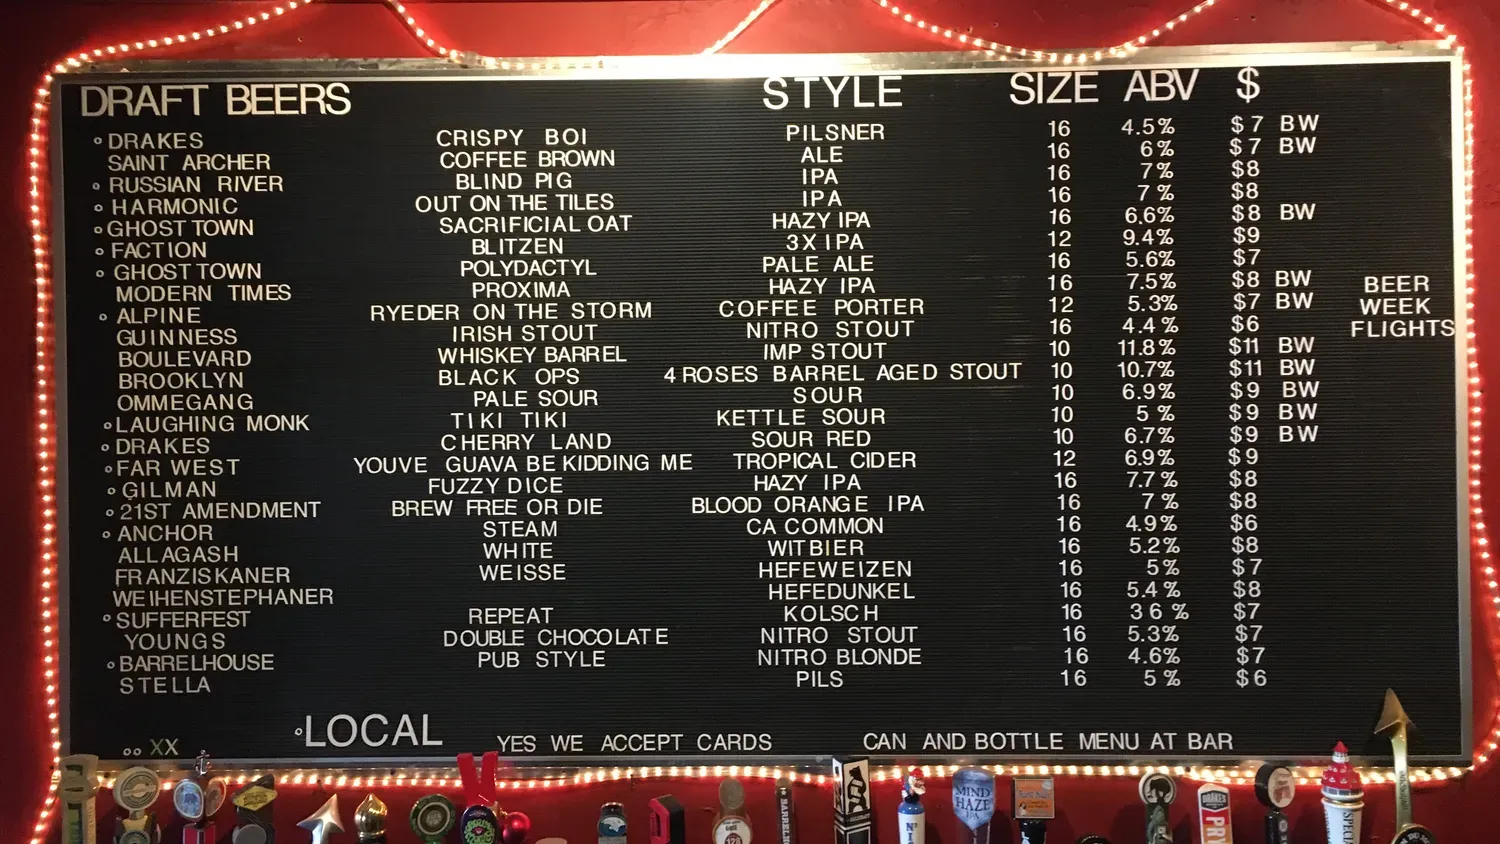 DRAFT BEERS STYLE SIZE ABV $
DRAKES CRISPY BOI PILSNER 16 4.5% $7 BW
SAINT ARCHER COFFEE BROWN ALE 16 6% $7 BW
RUSSIAN RIVER BLIND PIG IPA 16 7% $8
HARMONIC OUT ON THE TILES IPA 16 7% $8
GHOST TOWN SACRIFICIAL OAT HAZY IPA 16 6.6% $8 BW
FACTION BLITZEN 3X IPA 12 9.4% $9
GHOST TOWN POLYDACTYL PALE ALE 16 5.6% $7
MODERN TIMES PROXIMA HAZY IPA 16 7.5% $8 BW
ALPINE RYEDER ON THE STORM COFFEE PORTER 12 5.3% $7 BW
GUINNESS IRISH STOUT NITRO STOUT 16 4.4% $6
BOULEVARD WHISKEY BARREL IMP STOUT 10 11.8% $11 BW
BROOKLYN BLACK OPS 4 ROSES BARREL AGED STOUT 10 10.7% $11 BW
OMMEGANG PALE SOUR SOUR 10 6.9% $9 BW
LAUGHING MONK TIKI TIKI KETTLE SOUR 10 5% $9 BW
DRAKES CHERRY LAND SOUR RED 10 6.7% $9 BW
FAR WEST YOUVE GUAVA BE KIDDING ME TROPICAL CIDER 12 6.9% $9
GILMAN FUZZY DICE HAZY IPA 16 7.7% $8
21ST AMENDMENT BREW FREE OR DIE BLOOD ORANGE IPA 16 7% $8
ANCHOR STEAM CA COMMON 16 4.9% $6
ALLAGASH WHITE WITBIER 16 5.2% $8
FRANZISKANER WEISSE HEFEWEIZEN 16 5% $7
WEIHENSTEPHANER HEFEDUNKEL 16 5.4% $8
SUFFERFEST REPEAT KOLSCH 16 36% $7
YOUNGS DOUBLE CHOCOLATE NITRO STOUT 16 5.3% $7
BARRELHOUSE PUB STYLE NITRO BLONDE 16 4.6% $7
STELLA PILS 16 5% $6
BEER
WEEK
FLIGHTS
XX LOCAL YES WE ACCEPT CARDS CAN AND BOTTLE MENU AT BAR
MIND
HAZE
IPA
DRAKE'S